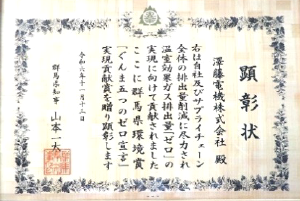 顕彰状
澤藤電機株式会社 殿
右は自社及びサプライチェーン
全体の排出量削減に尽力され
温室効果ガス排出量「ゼロ」の
実現に向けて貢献されました
ここに群馬県環境賞
「ぐんま五つのゼロ宣言」
実現貢献賞を贈り顕彰します
令和六年十一月十二日
群馬県知事 山本一太